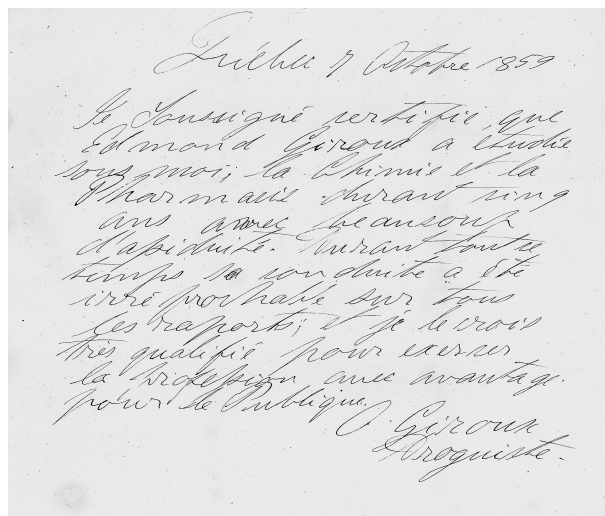 Québec 7 Octobre 1859
Je Soussigné certifie, que
Edmond Giroux a étudié
sous moi, la Chimie et la
Pharmacie durant cinq
ans avec beaucoup
d'asiduité. Durant tout ce
temps sa conduite a été
irréprochable sur tous
les raports; et je le crois
très qualifié pour exerser
la Profession avec avantage
pour le Publique.
O. Giroux
Droguiste.